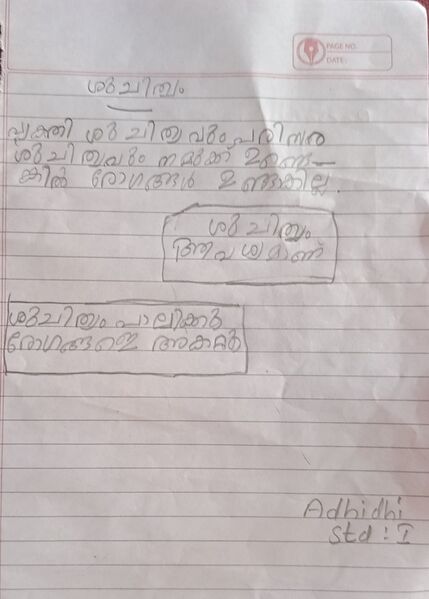 PAGE NO.
DATE:
ശുചിത്വം
വ്യക്തി ശുചിത്വവും പരിസര
ശുചിത്വവും നമുക്ക് ഉണ്ടെ-
ങ്കിൽ രോഗങ്ങൾ ഉണ്ടാകില്ല.
ശുചിത്വം
ആവശ്യമാണ്
ശുചിത്വം പാലിക്കു
രോഗങ്ങളെ അകറ്റു
Adhidhi
Std : I